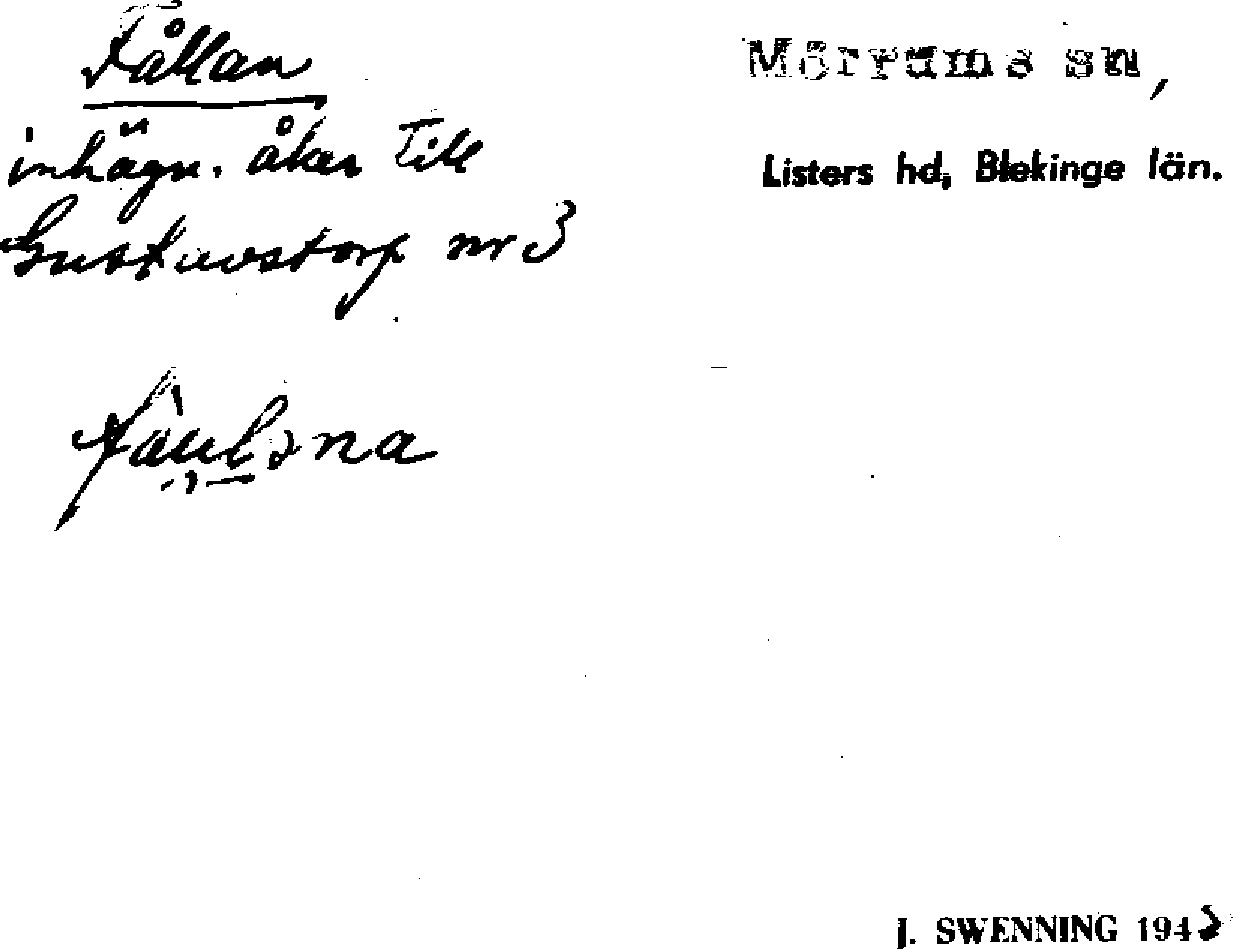 Fållan
inhägn. åker till
Gustavstorp nr 3
Mörrums sn,
Listers hd, Blekinge län.
J. SWENNING 194